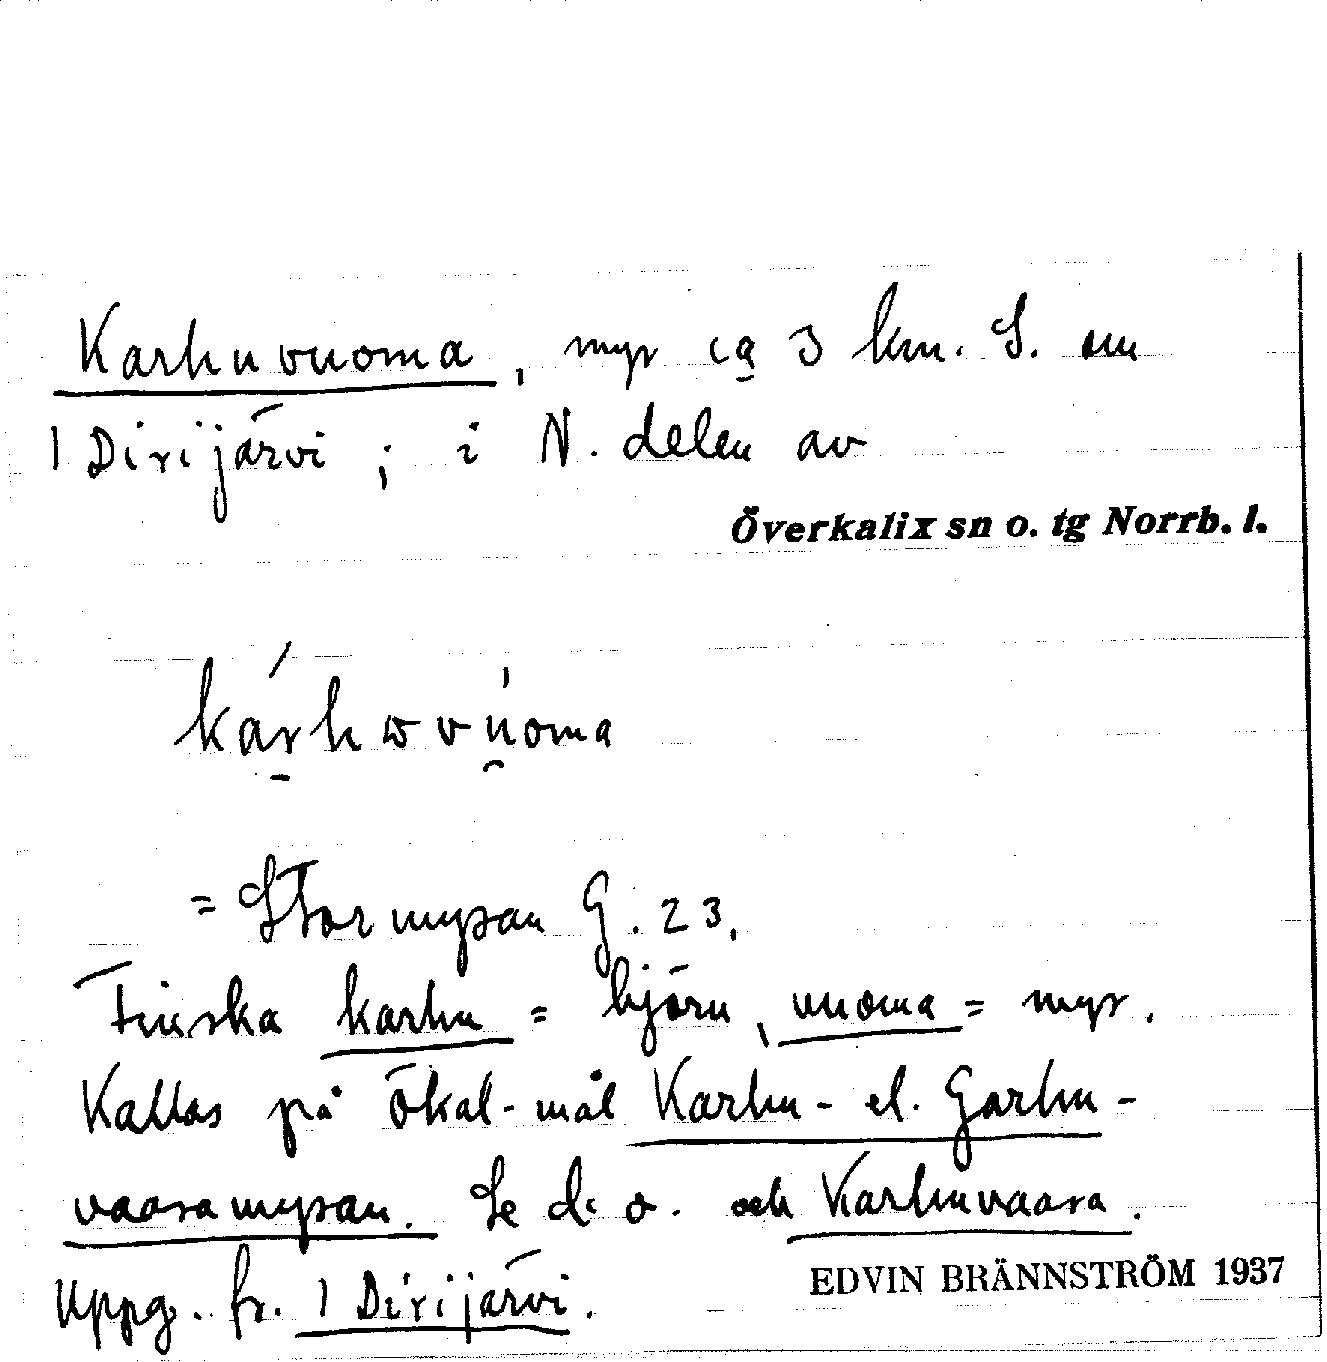 Karhuvuoma, myr ca 3 km. S. om
1 Dirijärvi; i N. delen av
Överkalix sn o. tg Norrb. l.
= Stormyran G. 23.
Finska karhu = björn, vuoma = myr.
Kallas på ökal-mål Karhu- el. Garhu-
vaaramyran. Se d. o. och Karhuvaara.
Uppg. fr. 1 Dirijärvi.
EDVIN BRÄNNSTRÖM 1937